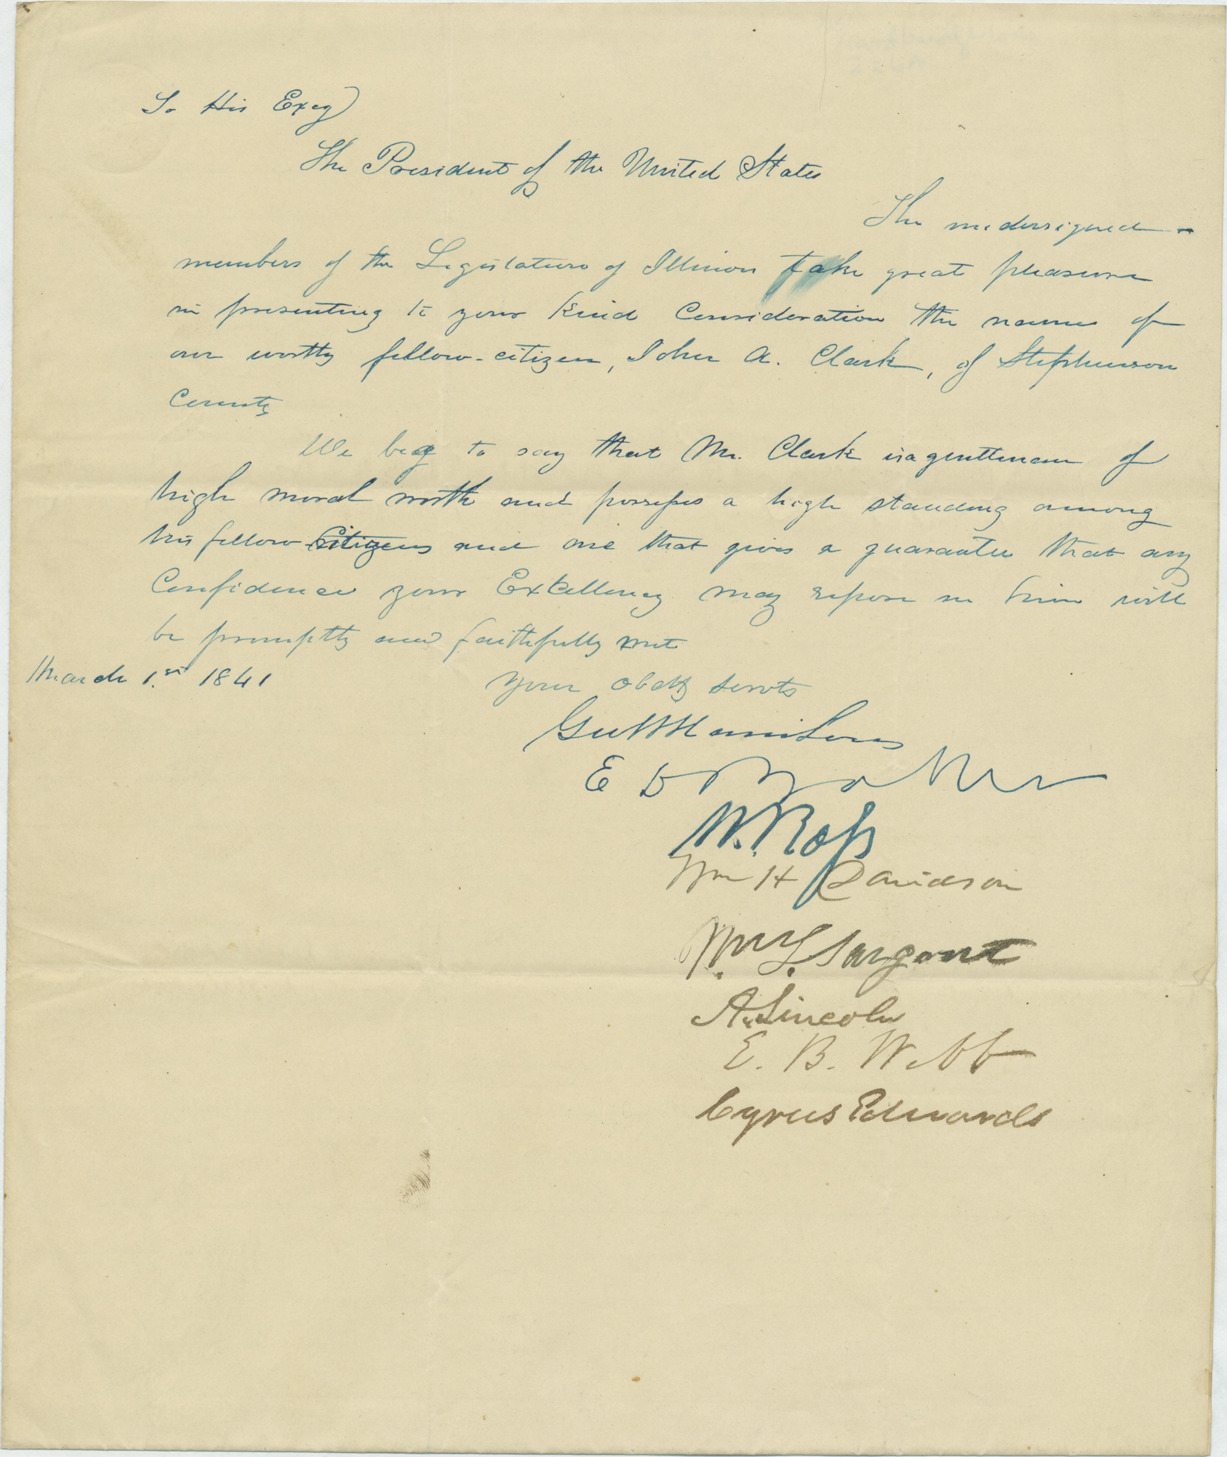 To His Excy
The President of the United States
The undersigned
members of the Legislature of Illinois take great pleasure
in presenting to your kind Consideration the name of
our worthy fellow-citizen, John A. Clark, of Stephenson
County
We beg to say that Mr. Clark is a gentleman of
high moral worth and possess a high standing among
his fellow-Citizens and one that gives a guarantee that any
Confidence your Excellency may repose in him will
be promptly and faithfully met
March 1.st 1841
Your obdt servts
E D Baker
W. Ross
Wm H Davidson
Wm. L. Sargent
A. Lincoln
E. B. Webb
Cyrus Edwards